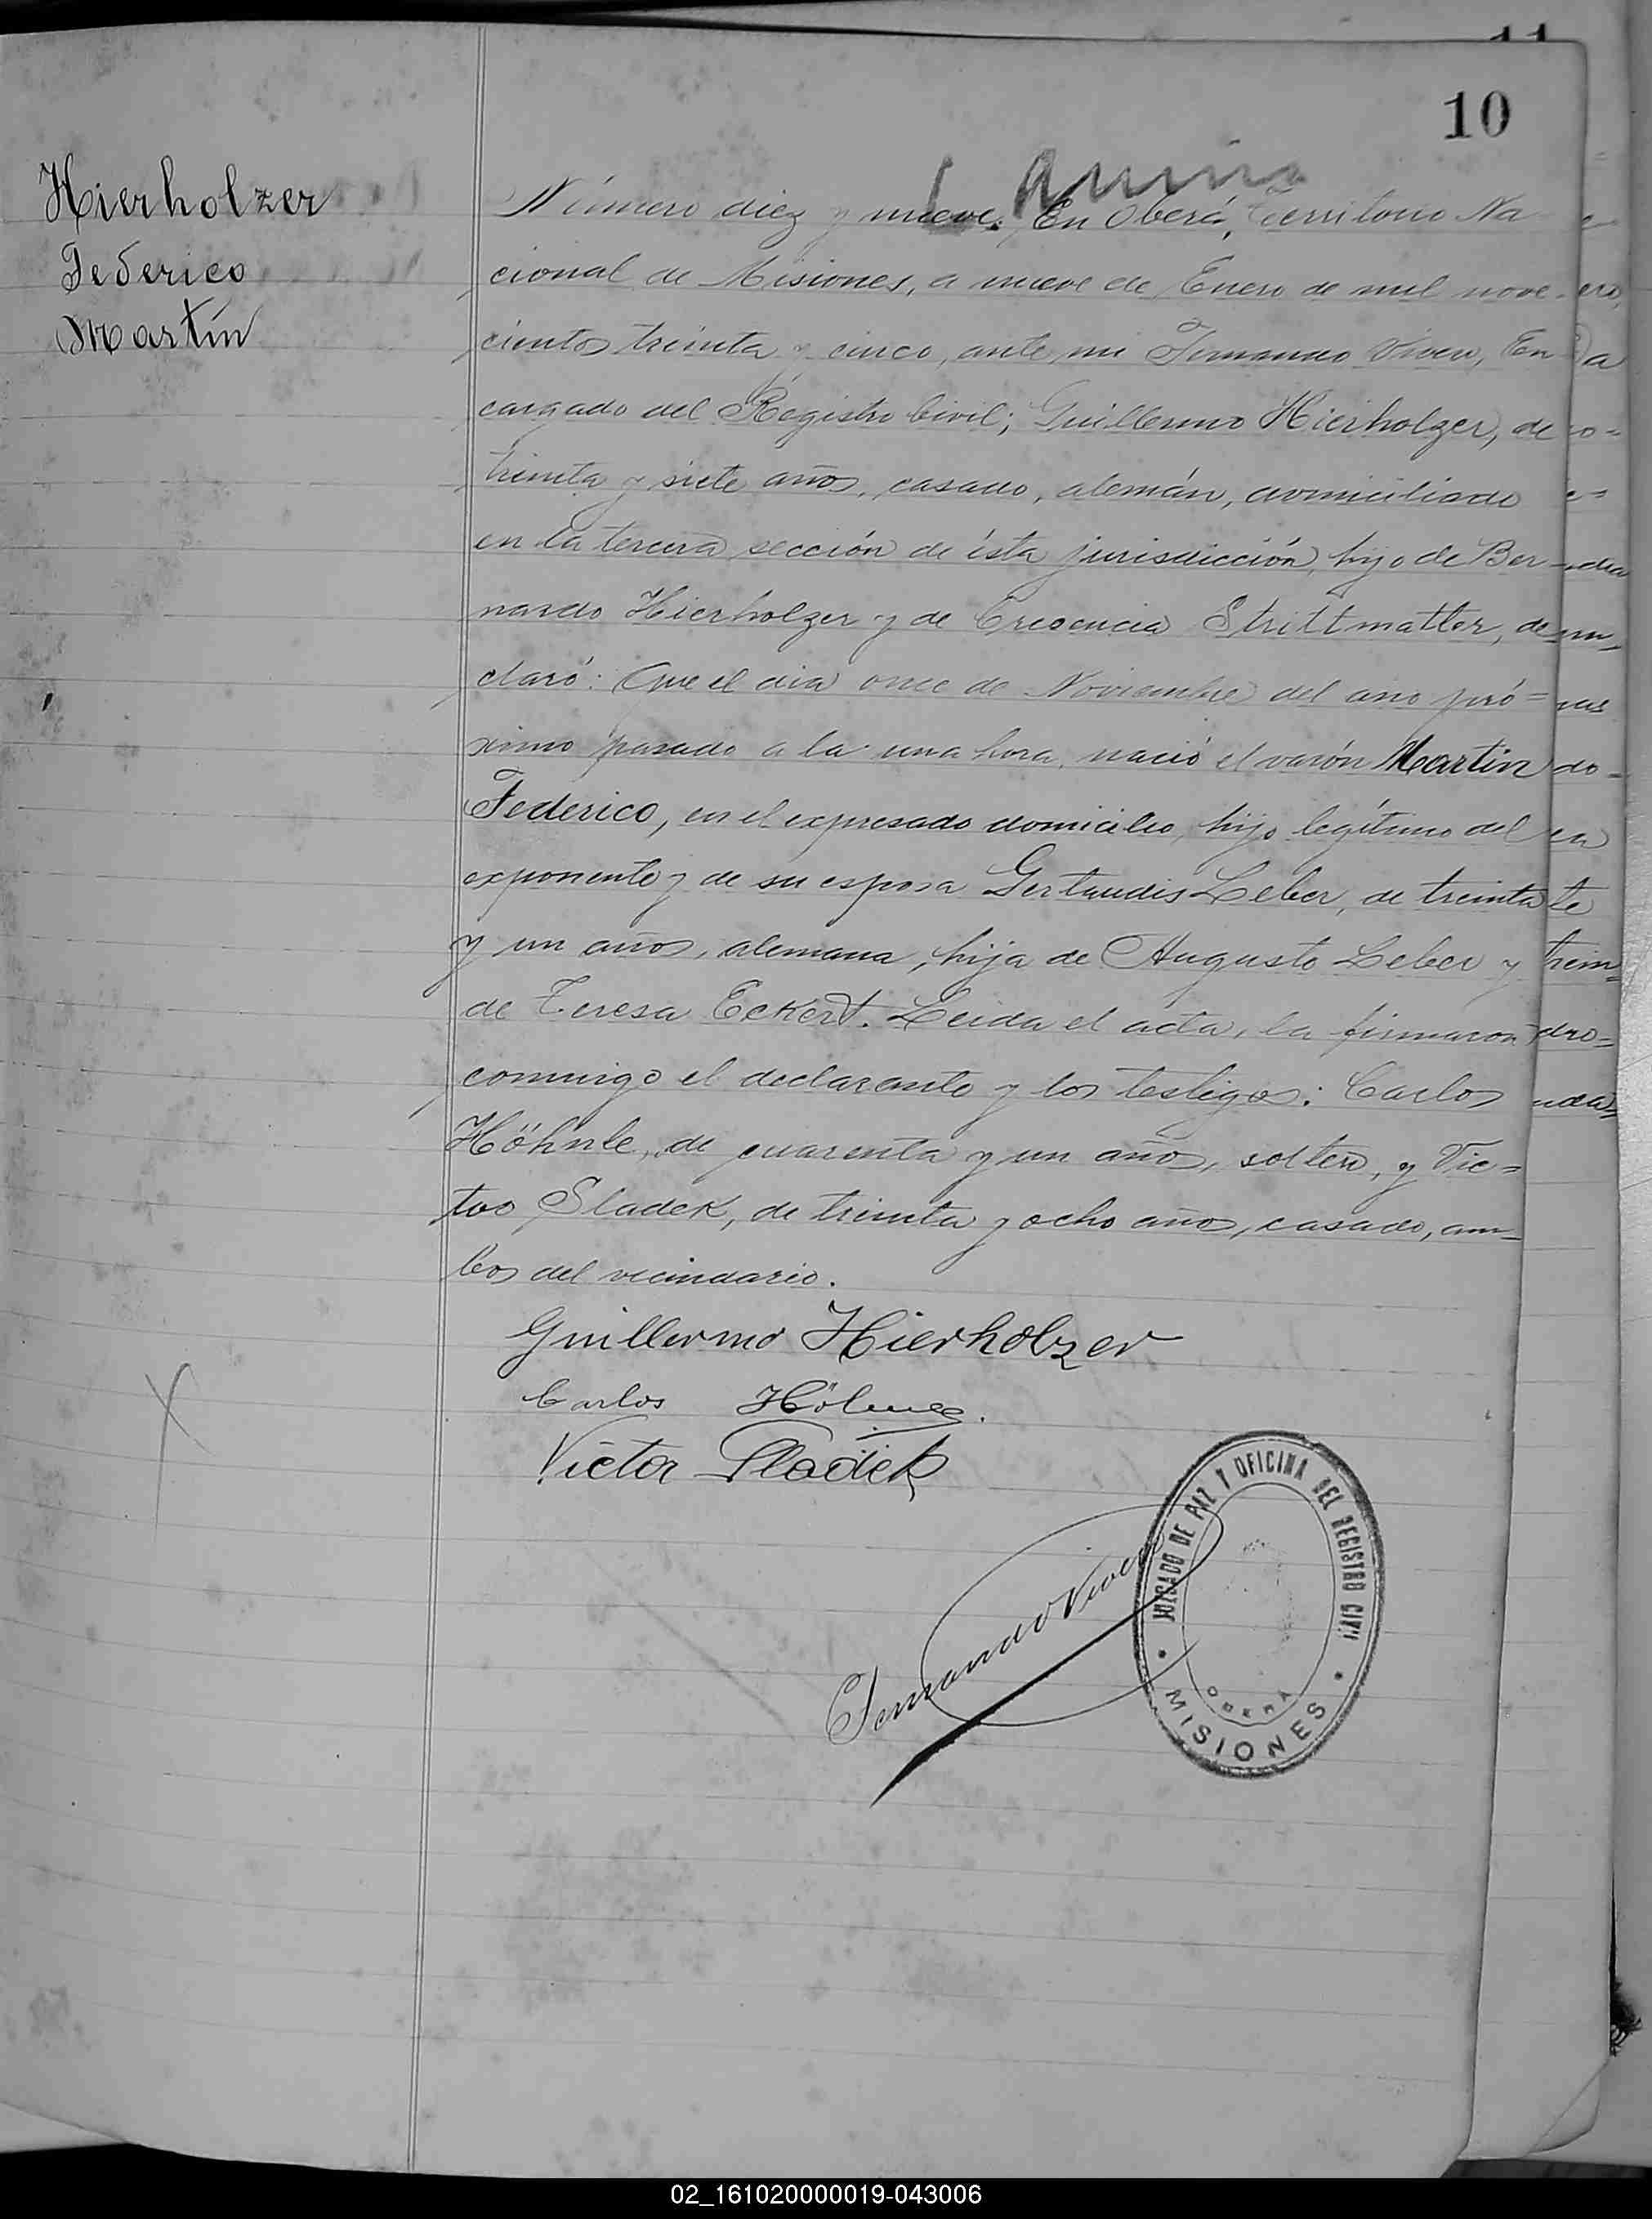 10
Hierholzer
Federico
Martín
Número diez y nueve. En Oberá, Territorio Na
cional de Misiones, a nueve de Enero de mil nove-
cientos treinta y cinco, ante mi Fernando Vivero, En
cargado del Registro Civil; Guillermo Hierholzer, de
treinta y siete años, casado, alemán, domiciliado
en la tercera sección de ésta jurisdicción, hijo de Ber-
nardo Hierholzer y de Crecencia Strittmatter, de
claró: Que el dia once de Noviembre del año pró=
ximo pasado a la una hora, nació el varón Martin
Federico, en el expresado domicilio, hijo legítimo del
exponente y de su esposa Gertrudis Leber, de treinta
y un años, alemana, hija de Augusto Leber y
de Teresa Eckert. Leida el acta, la firmaron
conmigo el declarante y los testigos: Carlos
Höhnle, de cuarenta y un años, soltero, y Vic=
tor Sladek, de treinta y ocho años, casado, am=
bos del vecindario.
Guillermo Hierholzer
Carlos Höhnle.
Victor Sladek
Fernando Vivero
JUZGADO DE PAZ Y OFICINA DEL REGISTRO CIVIL
OBERÁ
MISIONES
02_161020000019-043006